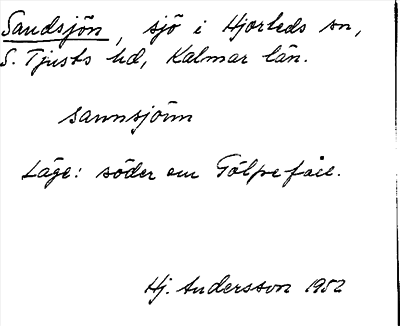 Sandsjön, sjö i Hjorteds sn,
S. Tjusts hd, Kalmar län.
sannsjönn
Läge: söder om
Hj. Andersson 1952